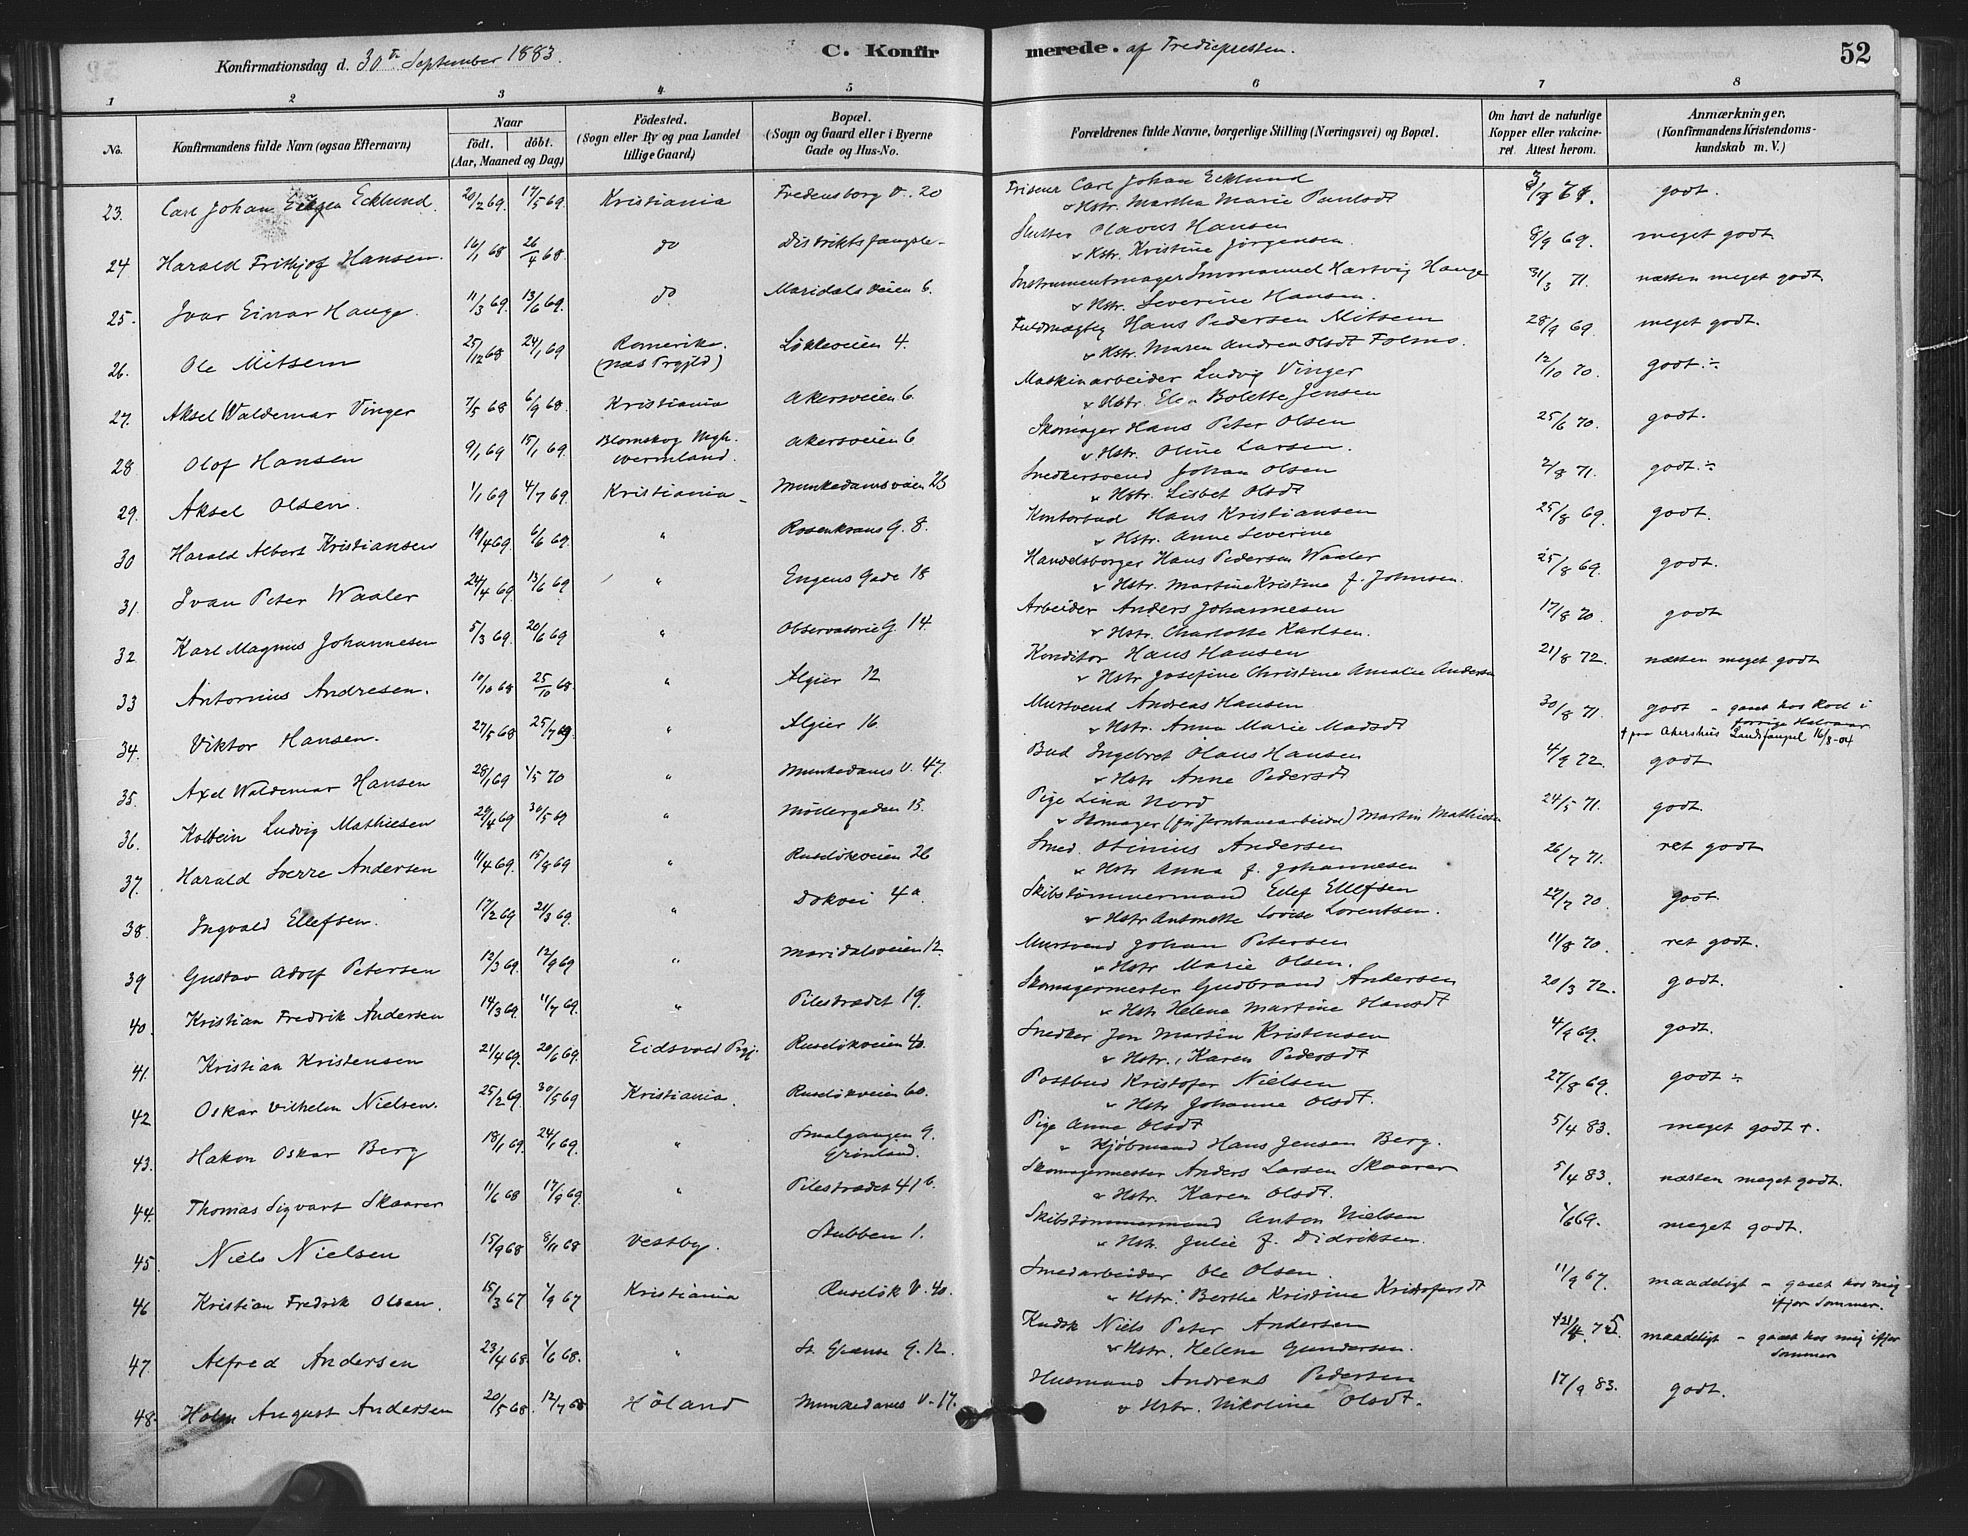 Konfirmationsdag d. 30te September 1883. C. Konfirmerede. af Trediepræsten. 52
1 2 3 4 5 6 7 8
No. Konfirmandens fulde Navn (ogsaa Efternavn) Naar födt. döbt. (Aar, Maaned og Dag) Födested. (Sogn eller By og paa Landet tillige Gaard) Bopæl. (Sogn og Gaard eller i Byerne Gade og Hus-No. Forældrenes fulde Navne, borgerlige Stilling (Næringsvei) og Bopæl. Om havt de naturlige Kopper eller vakcineret. Attest herom. Anmærkninger. (Konfirmandens Kristendomskundskab m. V.)
23. Carl Johan Ecklund. 20/2 69. 17/5 69. Kristiania Fredensborg v. 20 Friseur Carl Johan Ecklund godt.
& Hstr. Martha Marie Paulsdt
24 Harald Frithjof Hansen. 16/1 68 26/4 68. do Distriktsfængsle- Slutter Olavus Hansen 8/9 69. meget godt
& Hstr. Kristine Jørgensen.
25. Ivar Einar Hauge. 11/3 69. 13/6 69. do Maridalsveien 6. Instrumentmager Immanuel Hartvig Hauge 31/3 71. næsten meget godt
& Hstr. Severine Hansen.
26. Ole Mitsem 25/12 68 24/1 69 Romerike. (Næs Prgjld) Løkkeveien 4. Fuldmægtig Hans Pedersen Mitsem 28/9 69. meget godt.
& Hstr. Maren Andrea Olsdt Folmo.
27. Aksel Waldemar Vinger 7/5 68 6/9 68. Kristiania Akersveien 6. Maskinarbeider Ludvig Vinger 12/10 70. godt. ÷
& Hstr. Bolette Jensen
28 Olof Hansen 9/1 69 15/1 69. Blomskog Wermland. Akersveien 6 Skomager Hans Peter Olsen 25/6 70. godt.
& Hstr. Oline Larsen.
29. Aksel Olsen. 1/1 69 4/7 69. Kristiania - Munkedamsveien 23 Snedkersvend Johan Olsen 2/8 71. godt. ÷
& Hstr. Lisbet Olsdt
30 Harald Albert Kristiansen 19/4 69. 6/6 69. " Rosenkrans G. 8. Kontorbud Hans Kristiansen 25/8 69. godt.
& Hstr. Anne Severine
31. Ivan Peter Waaler 24/4 69. 13/6 69 " Engens Gade 18 Handelsborger Hans Pedersen Waaler 25/8 69. godt.
& Hstr. Martine Kristine f. Johnsen.
32 Karl Magnus Johannesen 5/3 69. 20/6 69 " Observatorie G. 14. Arbeider Anders Johannesen 17/8 70. godt
& Hstr. Charlotte Karlsen.
33 Antonius Andresen. 10/10 68 25/10 68. " Algier 12 Konditor Hans Hansen 21/8 72. næsten meget godt
& Hstr Josefine Christine Amalie Andersen
34. Viktor Hansen. 27/5 68 25/7 69. " Algier 16 Mursvend Andreas Hansen 30/8 71. godt - gaaet hos Kod i forrige Halvaar
& Hstr. Anna Marie Madsdt † paa Akershus Landsfængsel 16/8-04
35. Axel Waldemar Hansen 28/1 69 1/5 70 " Munkedams V. 47. Bud Ingebret Olaus Hansen 4/9 72. godt
& Hstr. Anne Pedersdt
36. Kolbein Ludvig Mathiesen 29/4 69 30/5 69 " Møllergaden 15. Pige Lina Nord 24/5 71. godt.
& Skomager Martin Mathiesen
37. Harald Sverre Andersen 11/4 69. 15/8 69 " Ruseløkveien 26 Smed. Otinius Andersen 26/7 71. ret godt
& Hstr Anna f. Johannesen
38. Ingvald Ellefsen. 17/2 69 21/3 69. " Dokvei 4a Skibstømmermand Ellef Ellefsen 27/7 70. godt.
& Hstr Antonette Lovise Lorentsen.
39 Gustav Adolf Petersen 12/3 69. 12/9 69 " Maridalsveien 12. Mursvend Johan Petersen 11/8 70. ret godt.
& Hstr Marie Olsen.
40. Kristian Fredrik Andersen 14/3 69. 11/7 69. " Pilestrædet 19. Skomagermester Gudbrand Andersen 20/3 72. godt.
& Hstr Helene Martine Hansdt
41. Kristian Kristensen 21/4 69. 20/6 69. Eidsvold Prgj. Ruseløkveien 40. Snedker Jon Martin Kristensen 4/9 69. godt.
& Hstr. Karen Pedersdt
42 Oskar Vilhelm Nielsen. 25/2 69. 30/5 69 Kristiania. Ruseløkveien 60. Postbud Kristofer Nielsen 27/8 69. godt ÷
& Hstr Johanne Olsdt.
43. Hakon Oskar Berg 18/1 69. 24/1 69. " Smalgangen 9. Grønland. Pige Anne Olsdt 5/4 83. meget godt +.
& Kjøbmand Hans Jensen Berg.
44. Thomas Sigvart Skaarer 11/6 68 17/9 69. " Pilestrædet 41 b. Skomagermester Anders Larsen Skaarer 5/4 83. næsten meget godt.
& Hstr. Karen Olsdt.
45. Niels Nielsen 15/9 68 8/11 68 Vestby. Stubben 1. Skibstømmermand Anton Nielsen 1/6 69. meget godt.
& Hstr. Julie f. Didriksen.
46 Kristian Fredrik Olsen. 15/3 67 1/9 67 Kristiania Ruseløk V. 40. Smedarbeider Ole Olsen. 11/9 67. maadeligt - gaaet hos mig ifjor Sommer.
& Hstr. Berthe Kristine Kristofersdt
47. Alfred Andersen 23/4 68 1/6 68. " G. 12. Kudsk Niels Peter Andersen maadeligt - gaaet hos mig ifjor Sommer
& Hstr. Helene Gundersen.
48. Holm August Andersen 20/5 68. 12/7 68 Höland Munkedams V. 17. Husmand Andreas Pedersen 17/9 83. godt.
& Hstr. Nikoline Olsdt.